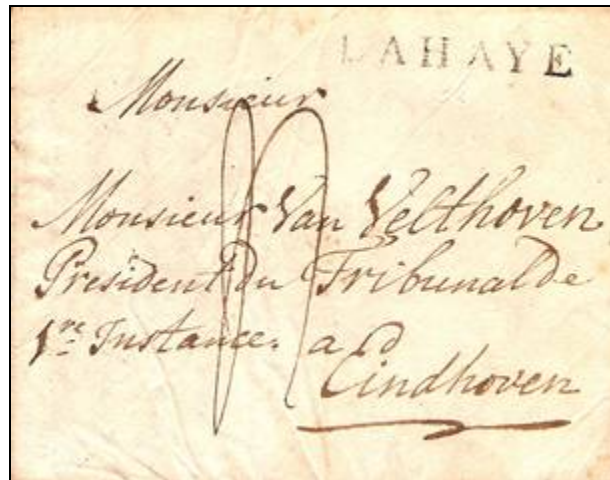 LAHAYE
Monsieur
Monsieur Van Velthoven
President du Tribunal de
1re Instance. a
Eindhoven